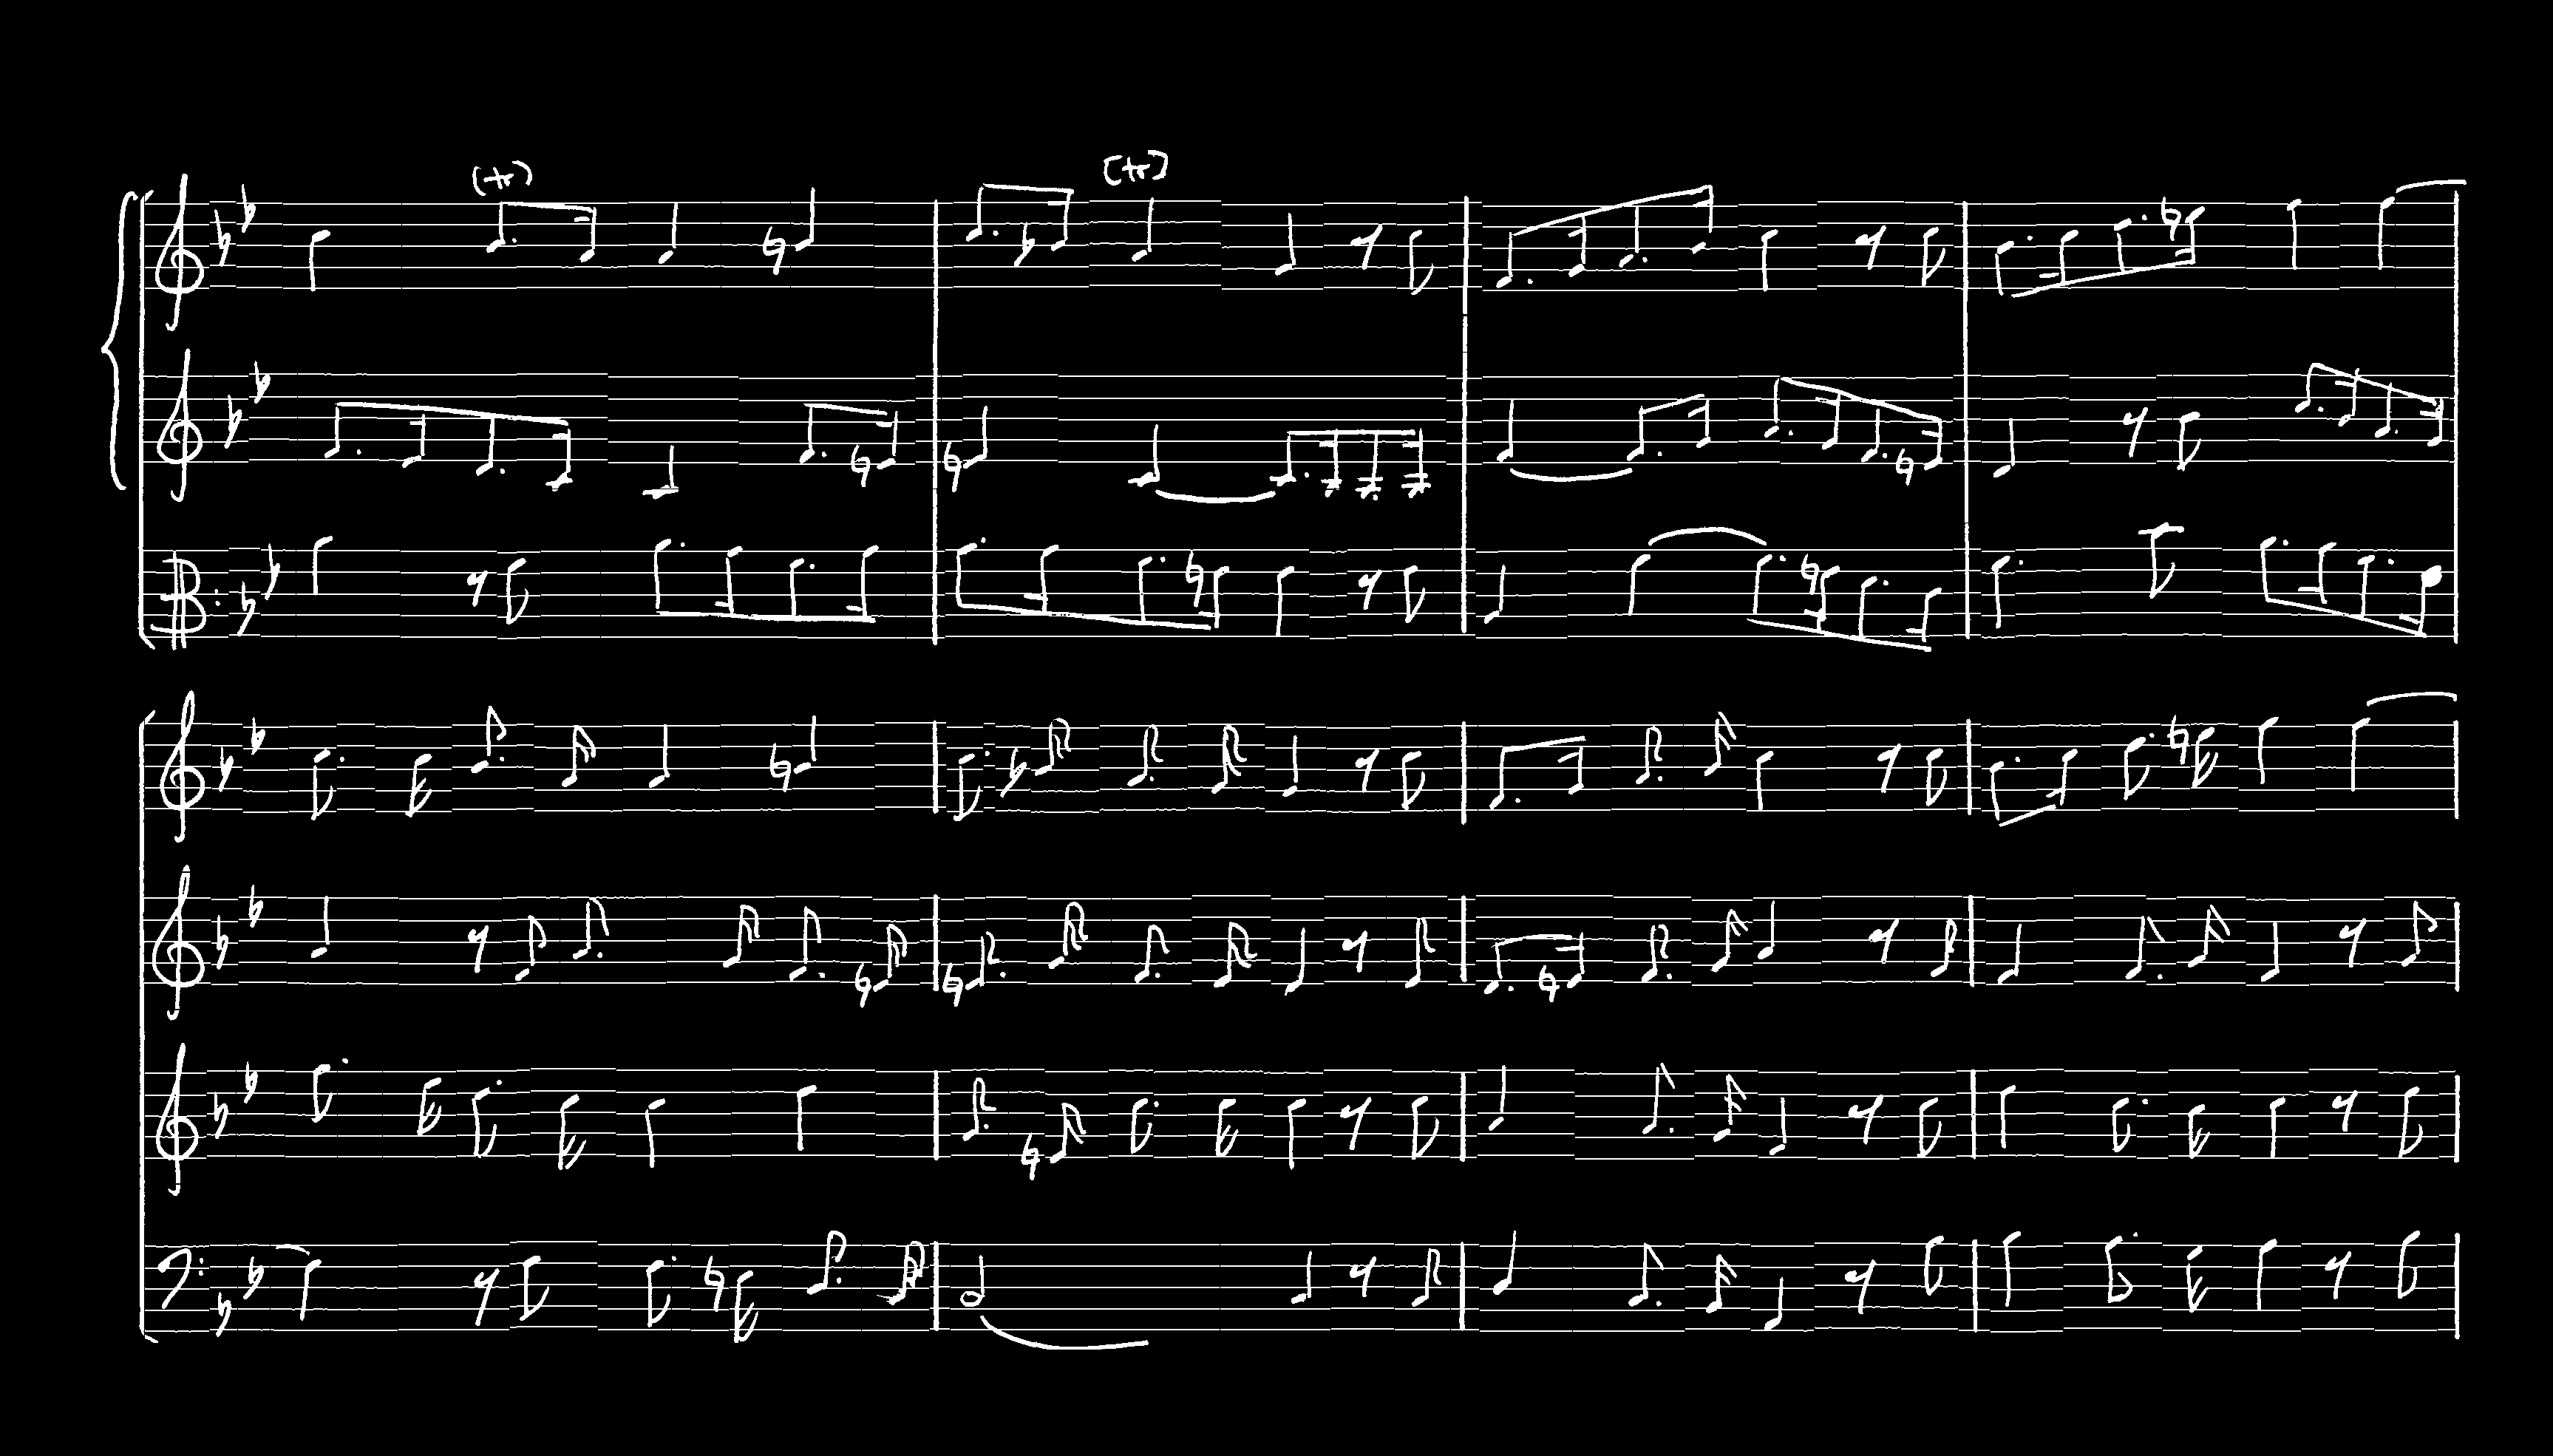 (tr)
[tr]